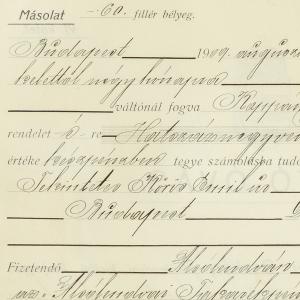 Másolat -.60. fillér bélyeg.
Budapest 1909. augusz
kelettől négy hónapra
váltónál fogva Koppán
rendelet é re Hatszáznegyven
értéke készpénzben tegye számolásba tudó
Tekintetes Kőrös Emil úr
Budapest
Fizetendő Alsólendván
az Alsólendvai Takarékpén